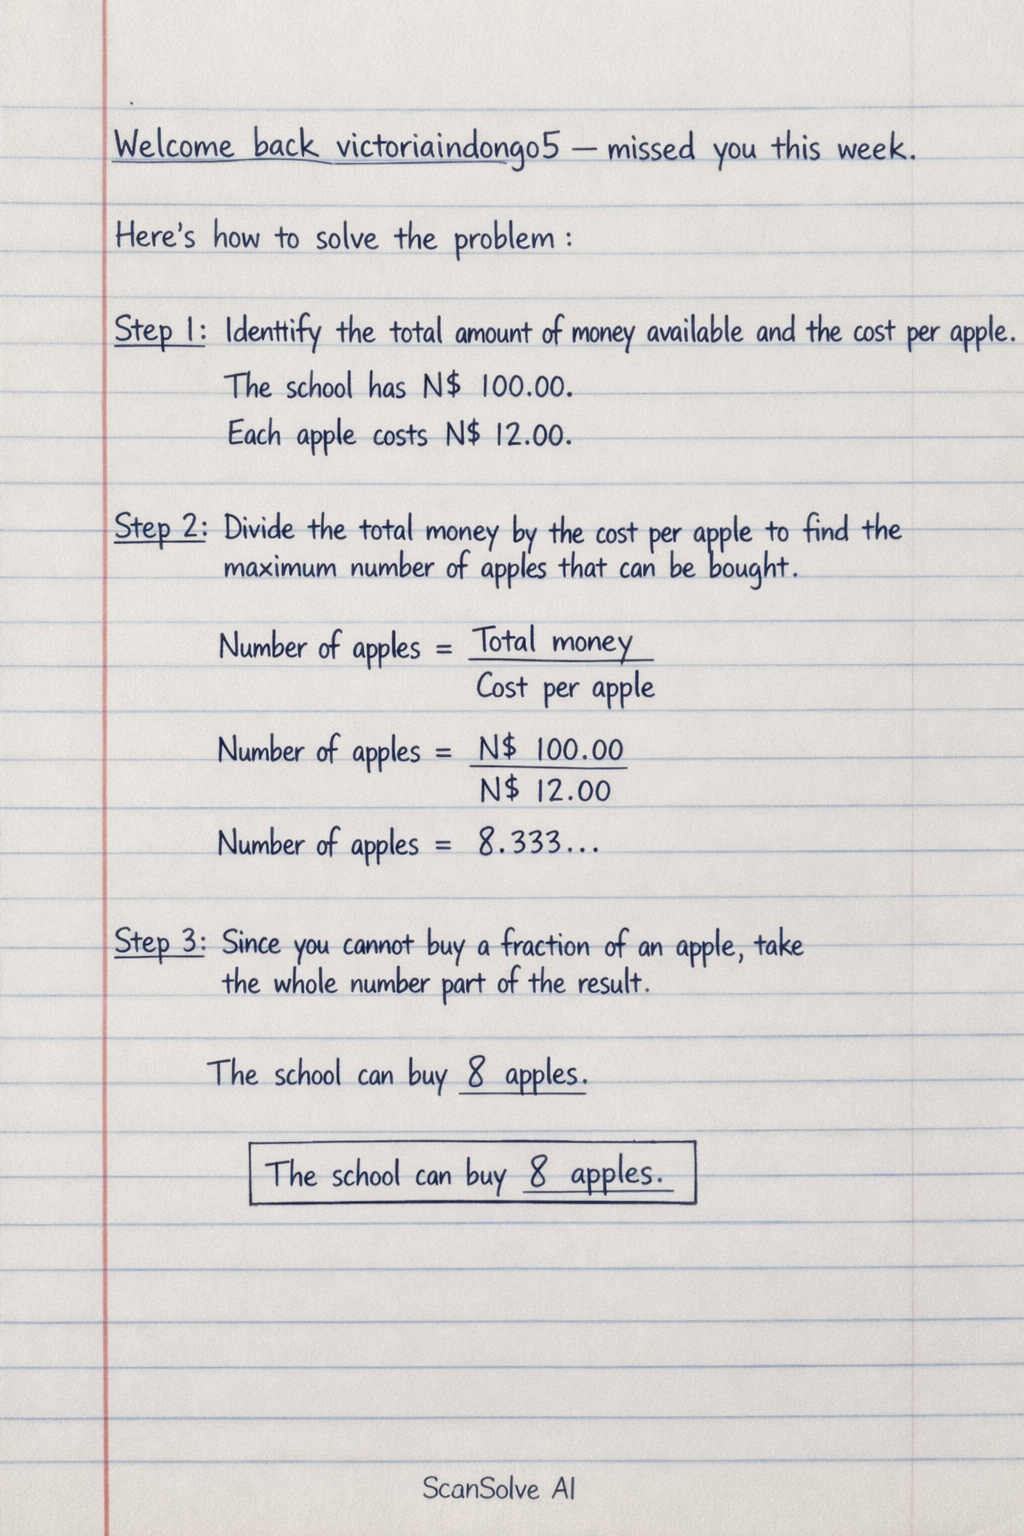 Welcome back victoriaindongo5 – missed you this week.
Here's how to solve the problem :
Step 1: Identify the total amount of money available and the cost per apple.
The school has N$ 100.00.
Each apple costs N$ 12.00.
Step 2: Divide the total money by the cost per apple to find the
maximum number of apples that can be bought.
Number of apples = Total money
Cost per apple
Number of apples = N$ 100.00
N$ 12.00
Number of apples = 8.333...
Step 3: Since you cannot buy a fraction of an apple, take
the whole number part of the result.
The school can buy 8 apples.
The school can buy 8 apples.
ScanSolve AI